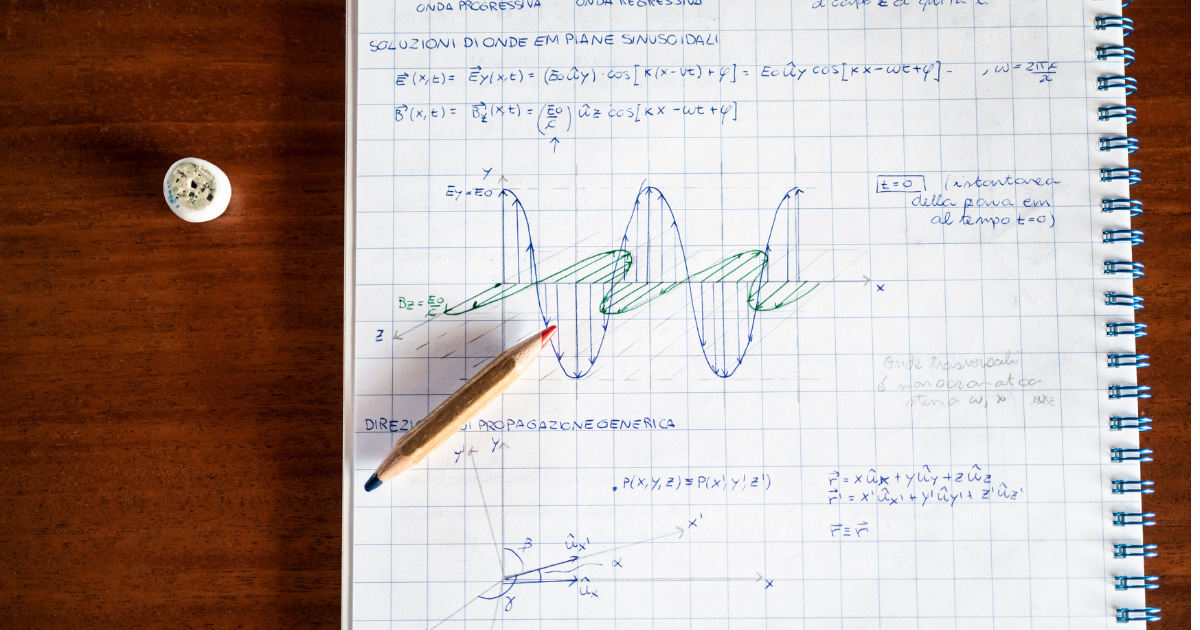 ONDA PROGRESSIVA ONDA REGRESSIVA
SOLUZIONI DI ONDE EM PIANE SINUSOIDALI
E⃗(x,t) = E⃗y(x,t) = (E0 ûy)·cos[k(x-vt)+φ] = E0 ûy cos[kx-ωt+φ]. , ω = 2πc/λ
B⃗(x,t) = B⃗z(x,t) = (E0/c) ûz cos[kx-ωt+φ]
↑
y
Ey=E0
t=0 (istantanea
della for em
al tempo t=0)
x
Bz = E0/c
z
Onde trasversali
monocromatica
stessa ω, λ
DIREZI DI PROPAGAZIONE GENERICA
y' y
.P(x,y,z) ≡ P(x',y',z')
r⃗ = xûx + yûy + zûz
r⃗' = x'ûx' + y'ûy' + z'ûz'
x'
r⃗ ≡ r⃗
β ûx'
α
x
ûx
γ